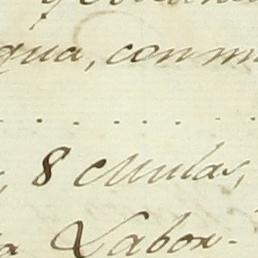 qua, con m
. . . . . . .
, 8 Mulas,
a Labor-